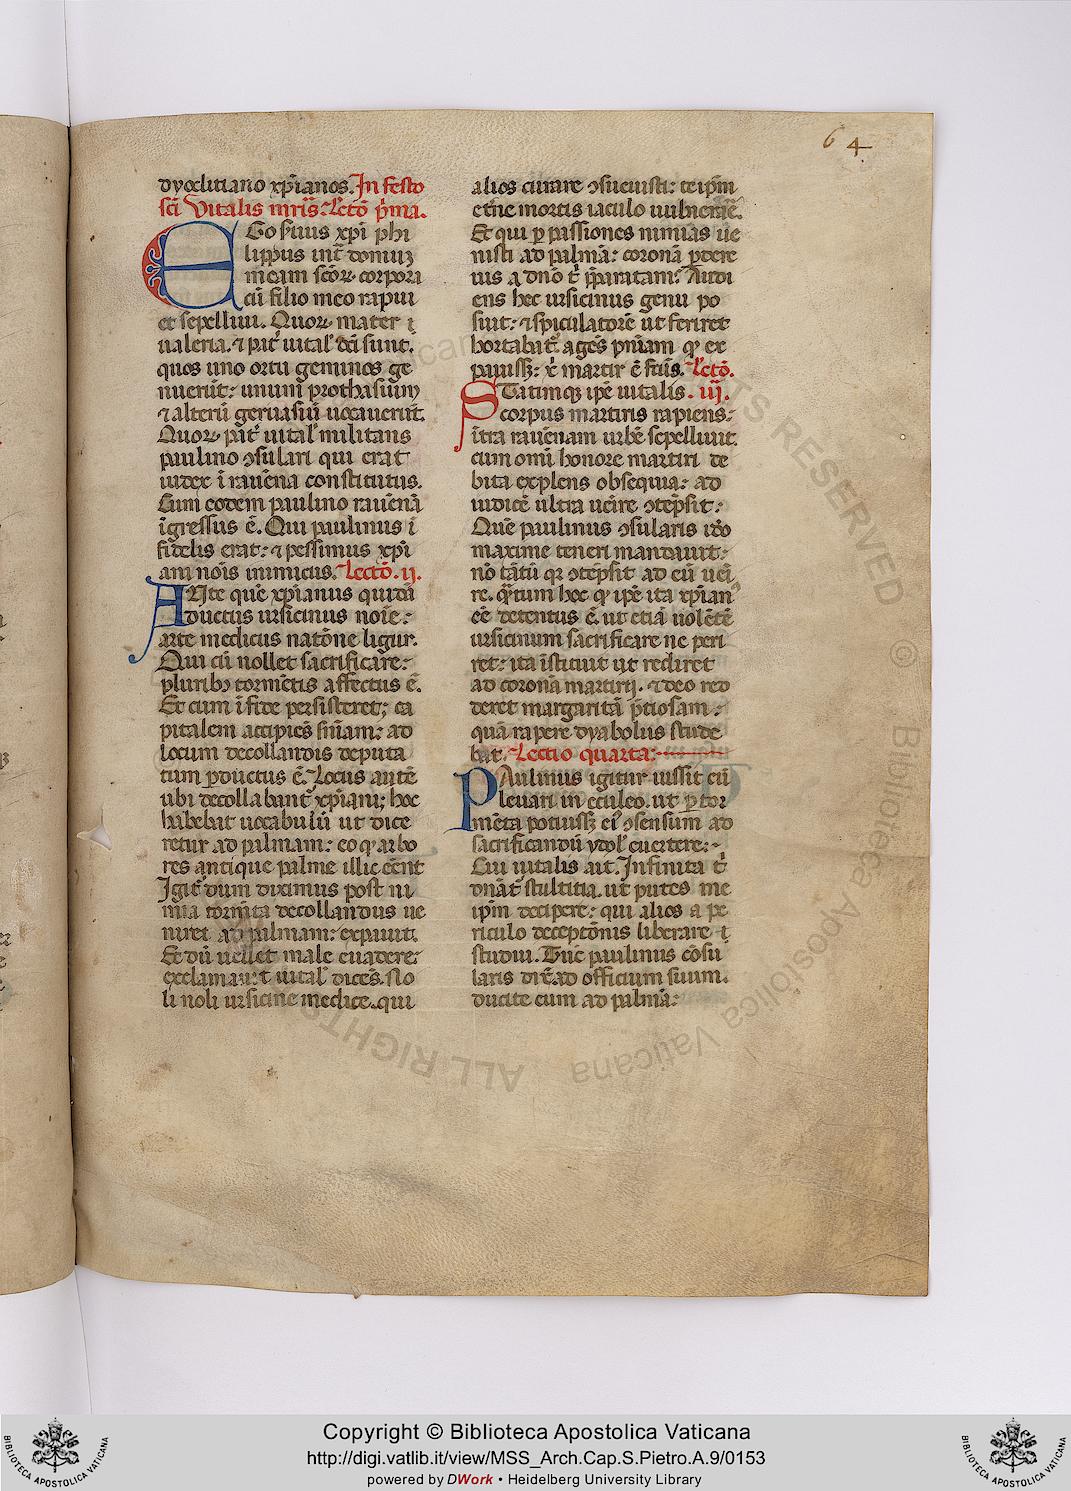 64
dyoclitiano xp̄ianos. In festo
sc̄i Vitalis mr̄is. Lectō p̄ma.
EGo s̄uus xp̄i phi
lippus int̄ domuʒ
meam sc̄oꝝ corpora
cū filio meo rapui
et sepelliui. Quoꝝ mater
ualeria. ⁊ pat̄ uital' dc̄i sunt.
quos uno ortu geminos ge
nuerūt: unum prothasium
⁊ alterū geruasiū uocauerūt.
Quoꝝ pat̄ uital' militans
paulino ꝯsulari qui erat
iudex ī rauēna constitutus.
Cum eodem paulino rauēnā
īgressus ē. Qui paulinus ī
fidelis erat: ⁊ pessimus xp̄i
ani nōis inimicus. Lectō .ij.
ANte quē xp̄ianus quidā
ductus ursicinus noīe:
arte medicus natōne ligur.
Qui cū nollet sacrificare:
pluribꝰ tormētis affectus ē.
Et cum ī fide persisteret; ca
pitalem accipiēs sn̄iam: ad
locum decollandis deputa
tum ꝑductus ē. Locus autē
ubi decollabant̄ xp̄iani; hoc
habebat uocabulū ut dice
retur ad palmam: eo ꝙ arbo
res antique palme illic eēnt
Igit̄ dum diximus post ni
mia torm̄ta decollandus ue
niret ad palmam: expauit.
Et dū uellet male euadere:
exclamauit uital' dicēs. No
li noli ursicine medice. qui
alios curare ꝯsueuisti: te ip̄m
et̄ne mortis iaculo uulnerare.
Et qui ꝑ passiones nimias ue
nisti ad palmā: coronā ꝑdere
uis a dn̄o t̄ p̄paratam. Audi
ens hec ursicinus genu po
suit: ⁊ spiculatorē ut feriret
hortabat̄. agēs pn̄iam ꝙ ex
pauissʒ: ⁊ martir ē f̄us. Lectō.
STatimqʒ ip̄e uitalis .iij.
corpus martiris rapiens:
ītra rauēnam urbē sepelliuit.
cum omī honore martiri de
bita explens obsequia: ad
iudicē ultra uenire ꝯtēpsit:
Quē paulinus ꝯsularis id̄o
maxime teneri mandauit:
nō tātū qꝛ ꝯtēpsit ad eū uēi
re. qn̄tum hoc ꝙ ip̄e ita xp̄ianꝰ
eē detentus ē. ut etiā uolētē
ursicinum sacrificare ne peri
ret: ita īstituit ut rediret
ad coronā martirij. ⁊ deo red
deret margaritā p̄tiosam:
quā rapere dyabolus stude
bat. Lectio quarta:
PAulinus igitur iussit eū
leuari in eculeo. ut ꝑ tor
mēta potuissʒ eiꝰ ꝯsensum ad
sacrificandū ydol' euertere:
Cui uitalis ait. Infinita t̄
dn̄at̄ stultitia. ut putes me
ip̄m decipere: qui alios a pe
riculo deceptōnis liberare
studui. Tūc paulinus cōsu
laris dix̄ ad officium suum.
ducite eum ad palmā:
ALL RIGHTS RESERVED © Biblioteca Apostolica Vaticana
BIBLIOTECA APOSTOLICA VATICANA
Copyright © Biblioteca Apostolica Vaticana
http://digi.vatlib.it/view/MSS_Arch.Cap.S.Pietro.A.9/0153
powered by DWork • Heidelberg University Library
BIBLIOTECA APOSTOLICA VATICANA